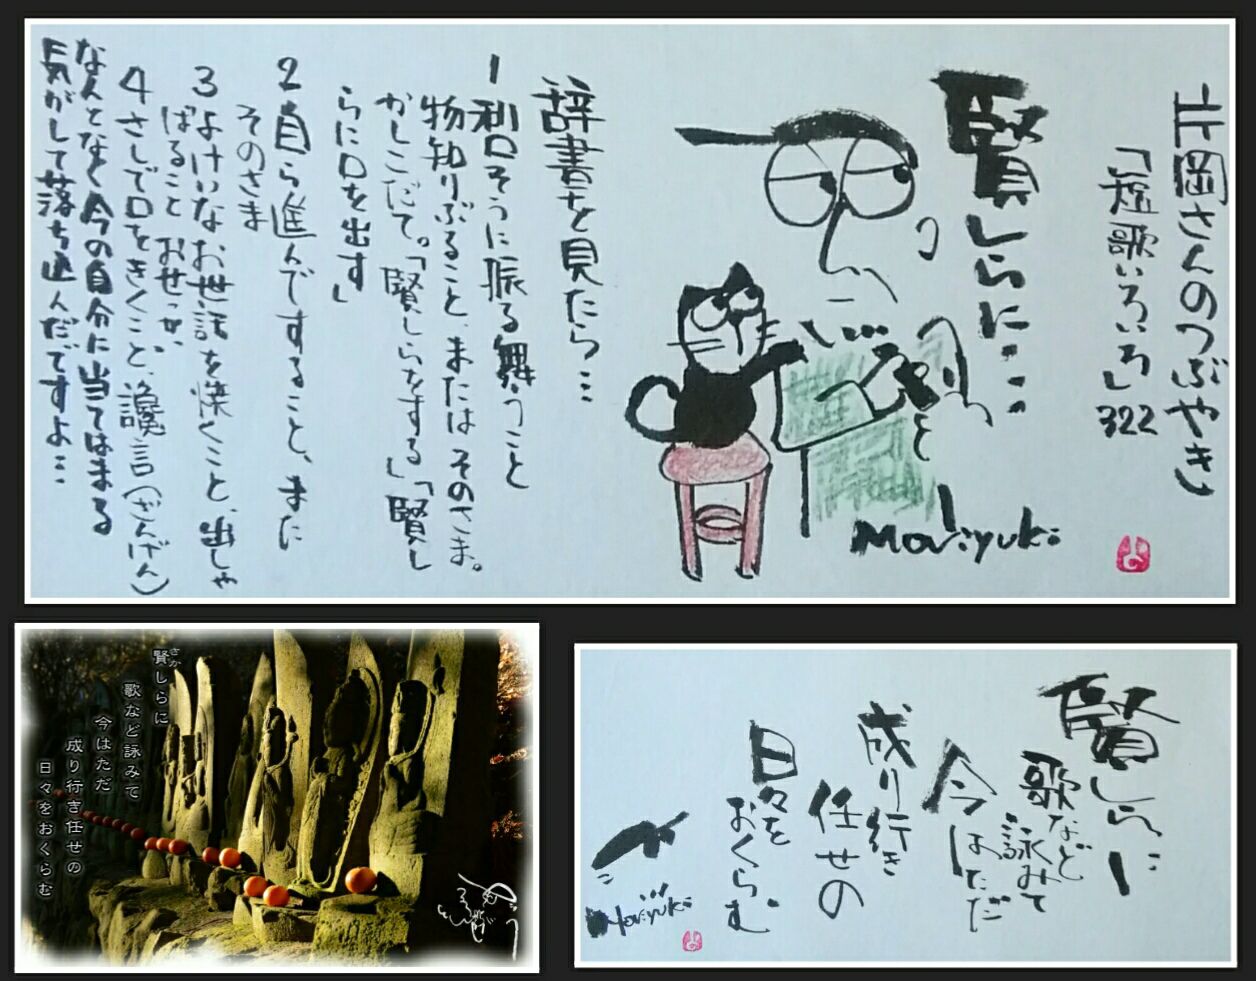 北岡さんのつぶやき
「短歌いろいろ」322
賢しらに…
Moriyuki
辞書を見たら…
1 利口そうに振る舞うこと
物知りぶること、またはそのさま。
かしこだて。「賢しらをする」「賢し
らに口を出す」
2 自ら進んですること、また
そのさま
3 よけいなお世話を焼くこと、出しゃ
ばること おせっかい
4 さしで口をきくこと、讒言(ざんげん)
なんとなく今の自分に当てはまる
気がして落ち込んだですよ…
賢しらに
さか
歌など詠みて
今はただ
成り行き任せの
日々をおくらむ
賢しらに
歌など
詠みて
今はただ
成り行き
任せの
日々を
おくらむ
Moriyuki